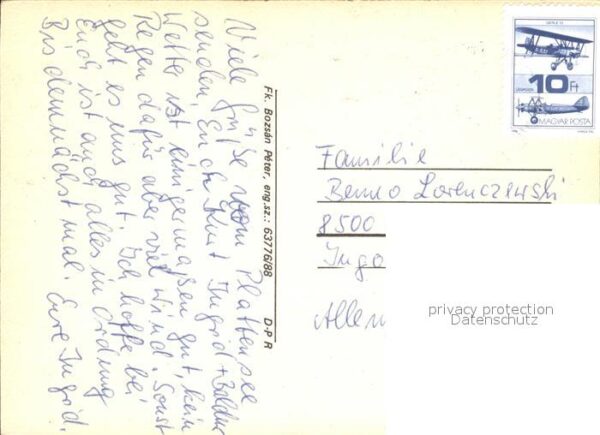 Viele Grüße vom Plattensee
senden Euch Kurt Ingrid +
Wetter ist einigermaßen gut, kein
Regen dafür aber viel Wind. Sonst
geht es uns gut. Ich hoffe bei
Euch ist auch alles in Ordnung
Bis demnächst mal. Eure Ingrid.
Fk. Bozsán Péter, eng.sz.: 63776/88 D-P R
10 Ft
MAGYAR POSTA
Familie
Benno Lorenczewski
8500
Ingo
Allem
privacy protection
Datenschutz